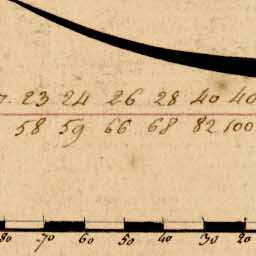 23 24 26 28 40 40
58 59 66 68 82 100
80 70 60 50 40 30 20